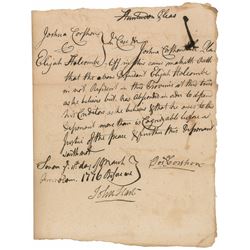 Hunterdon Pleas
Joshua Corshon
In Case &c
Elijah Holcombe
Joshua Corshon the Pla
in this cause maketh oath
that the above Defendant Elijah Holcombe
is not Resident in this Province at this time
as he believes but has absconded in order to defraud
his Creditors as he believes & that he owes to this
Deponent more than is Cognizable before a
Justice of the Peace & further this Deponent
saith not
Sworn day of March
1776 Before me
Joshua Corshon
John Hart